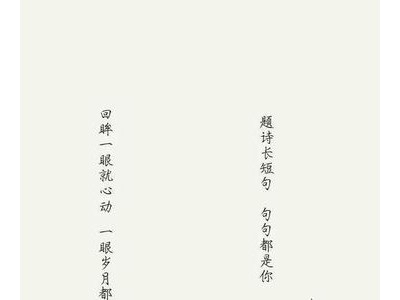 题诗长短句 句句都是你
回眸一眼就心动 一眼岁月都